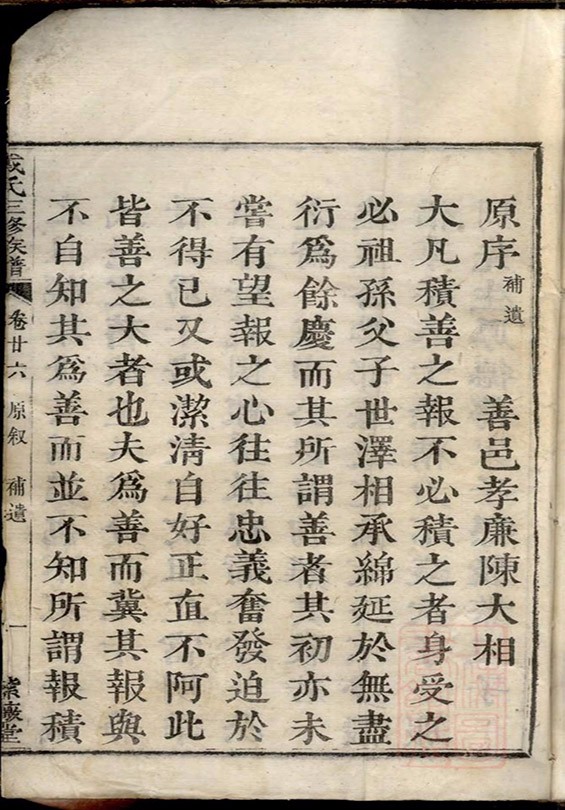 原序補遺 善邑孝廉陳大相
大凡積善之報不必積之者身受之
必祖孫父子世澤相承綿延於無盡
衍爲餘慶而其所謂善者其初亦未
嘗有望報之心往往忠義奮發迫於
不得已又或潔淸自好正直不阿此
皆善之大者也夫爲善而冀其報與
不自知其爲善而並不知所謂報積
氏三修族譜 卷廿六 原叙 補遺 一 堂